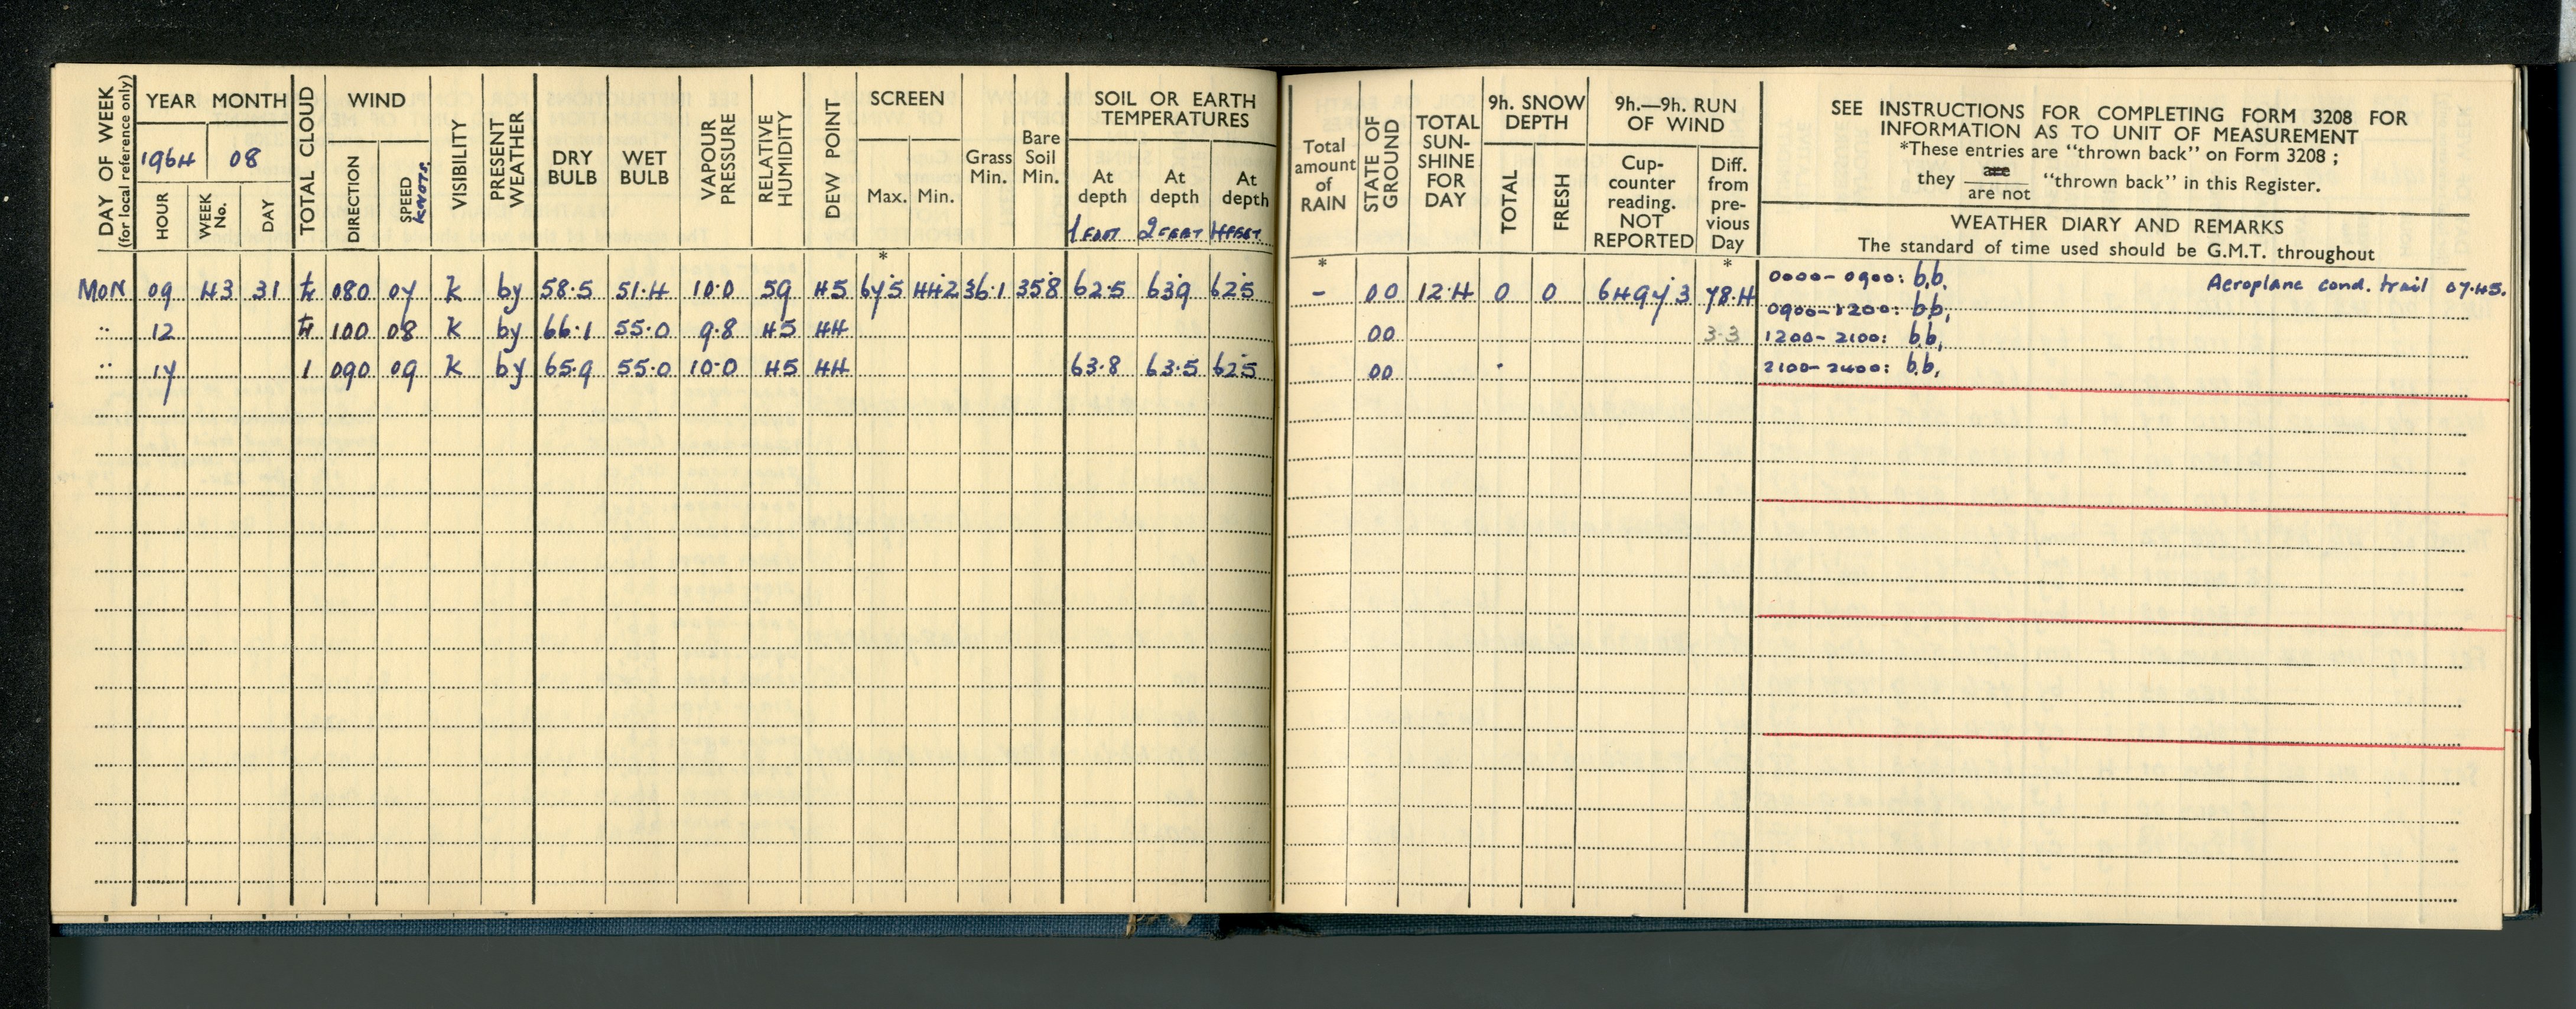 DAY OF WEEK
(for local reference only)
YEAR MONTH
1964 08
HOUR
WEEK No.
DAY
TOTAL CLOUD
WIND
DIRECTION
SPEED
knots.
VISIBILITY
PRESENT WEATHER
DRY BULB
WET BULB
VAPOUR PRESSURE
RELATIVE HUMIDITY
DEW POINT
SCREEN
Max. Min.
*
Grass Min.
Bare Soil Min.
SOIL OR EARTH
TEMPERATURES
At depth 1 FOOT
At depth 2 FEET
At depth 4 FEET
MON 09 43 31 tr 080 07 k by 58.5 51.4 10.0 59 45 67.5 44.2 36.1 35.8 62.5 63.9 62.5
" 12 tr 100 08 k by 66.1 55.0 9.8 45 44
" 17 1 090 09 k by 65.9 55.0 10.0 45 44 63.8 63.5 62.5
Total amount of RAIN
*
STATE OF GROUND
TOTAL SUN-SHINE FOR DAY
9h. SNOW DEPTH
TOTAL
FRESH
9h.—9h. RUN OF WIND
Cup-counter reading. NOT REPORTED
Diff. from pre-vious Day
*
SEE INSTRUCTIONS FOR COMPLETING FORM 3208 FOR
INFORMATION AS TO UNIT OF MEASUREMENT
*These entries are "thrown back" on Form 3208 ;
they are / are not "thrown back" in this Register.
WEATHER DIARY AND REMARKS
The standard of time used should be G.M.T. throughout
- 00 12.4 0 0 6497.3 78.4 0000-0900: b,b, Aeroplane cond. trail 07.45.
0900-1200: b,b,
00 3.3 1200-2100: b,b,
00 2100-2400: b,b,